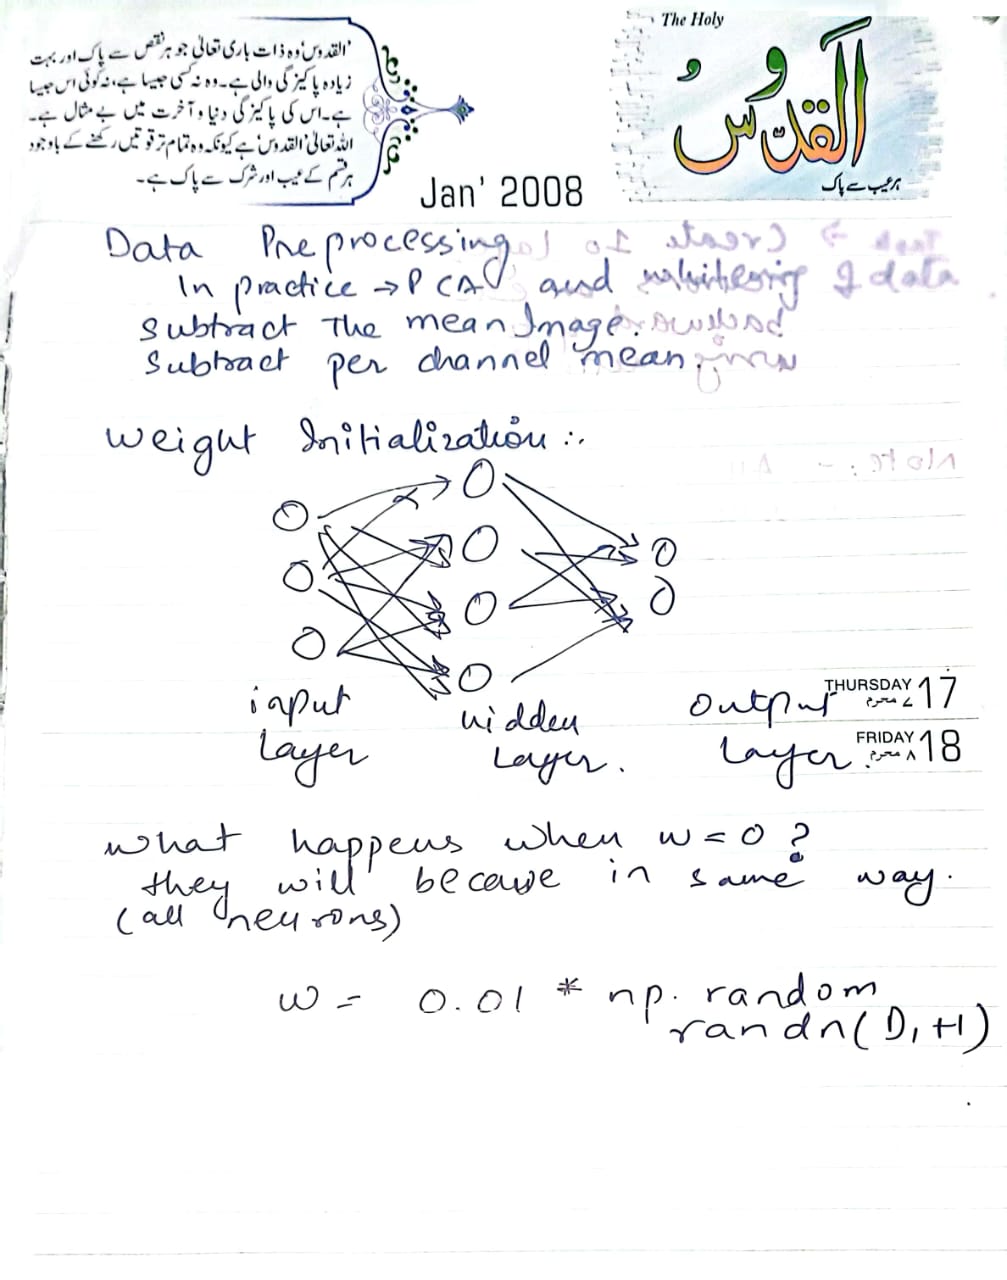 The Holy
القدوس
ہر عیب سے پاک
'القدوس' وہ ذات باری تعالٰی جو ہر نقص سے پاک اور بہت
زیادہ پاکیزگی والی ہے۔ وہ نہ کسی جیسا ہے، نہ کوئی اس جیسا
ہے۔ اس کی پاکیزگی دنیا و آخرت میں بے مثال ہے۔
اللہ تعالٰی 'القدوس' ہے کیونکہ وہ تمام تر قوتیں رکھنے کے باوجود
ہر قسم کے عیب اور شرک سے پاک ہے۔
Jan' 2008
Data Preprocessing
In practice → PCA and whitening of data
Subtract The mean Image.
Subtract per channel mean.
Weight Initialization :.
input
Layer
hidden
Layer.
output
Layer
THURSDAY 17
۷ محرم
FRIDAY 18
۸ محرم
what happens when w = 0 ?
they will becawe in same way.
(all neurons)
w = 0.01 * np. random
randn( D, H)